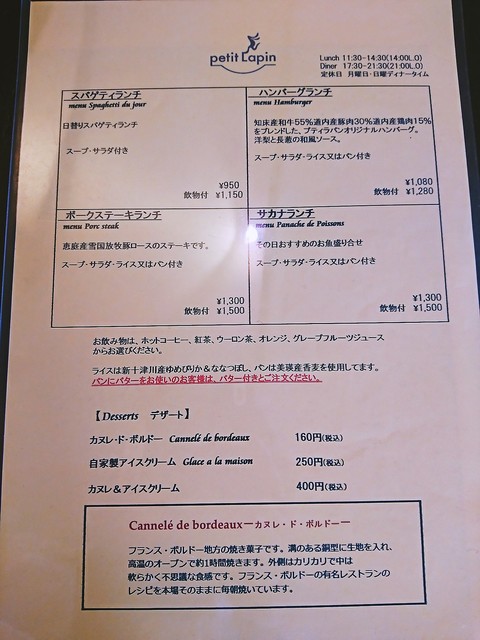 petit Lapin
Lunch 11:30-14:30(14:00L.O)
Diner 17:30-21:30(21:00L.O)
定休日 月曜日・日曜ディナータイム
スパゲティランチ
menu Spaghetti du jour
日替りスパゲティランチ
スープ・サラダ付き
¥950
飲物付 ¥1,150
ハンバーグランチ
menu Hamburger
知床産和牛55%道内産豚肉30%道内産鶏肉15%
をブレンドした、プティラパンオリジナルハンバーグ。
洋梨と長葱の和風ソース。
スープ・サラダ・ライス又はパン付き
¥1,080
飲物付 ¥1,280
ポークステーキランチ
menu Porc steak
恵庭産雪国放牧豚ロースのステーキです。
スープ・サラダ・ライス又はパン付き
¥1,300
飲物付 ¥1,500
サカナランチ
menu Panache de Poissons
その日おすすめのお魚盛り合せ
スープ・サラダ・ライス又はパン付き
¥1,300
飲物付 ¥1,500
お飲み物は、ホットコーヒー、紅茶、ウーロン茶、オレンジ、グレープフルーツジュース
からお選びください。
ライスは新十津川産ゆめぴりか&ななつぼし、パンは美瑛産香麦を使用してます。
パンにバターをお使いのお客様は、バター付きとご注文ください。
【Desserts デザート】
カヌレ・ド・ボルドー Cannelé de bordeaux 160円(税込)
自家製アイスクリーム Glace a la maison 250円(税込)
カヌレ&アイスクリーム 400円(税込)
Cannelé de bordeauxーカヌレ・ド・ボルドーー
フランス・ボルドー地方の焼き菓子です。溝のある銅型に生地を入れ、
高温のオーブンで約1時間焼きます。外側はカリカリで中は
軟らかく不思議な食感です。フランス・ボルドーの有名レストランの
レシピを本場そのままに毎朝焼いています。